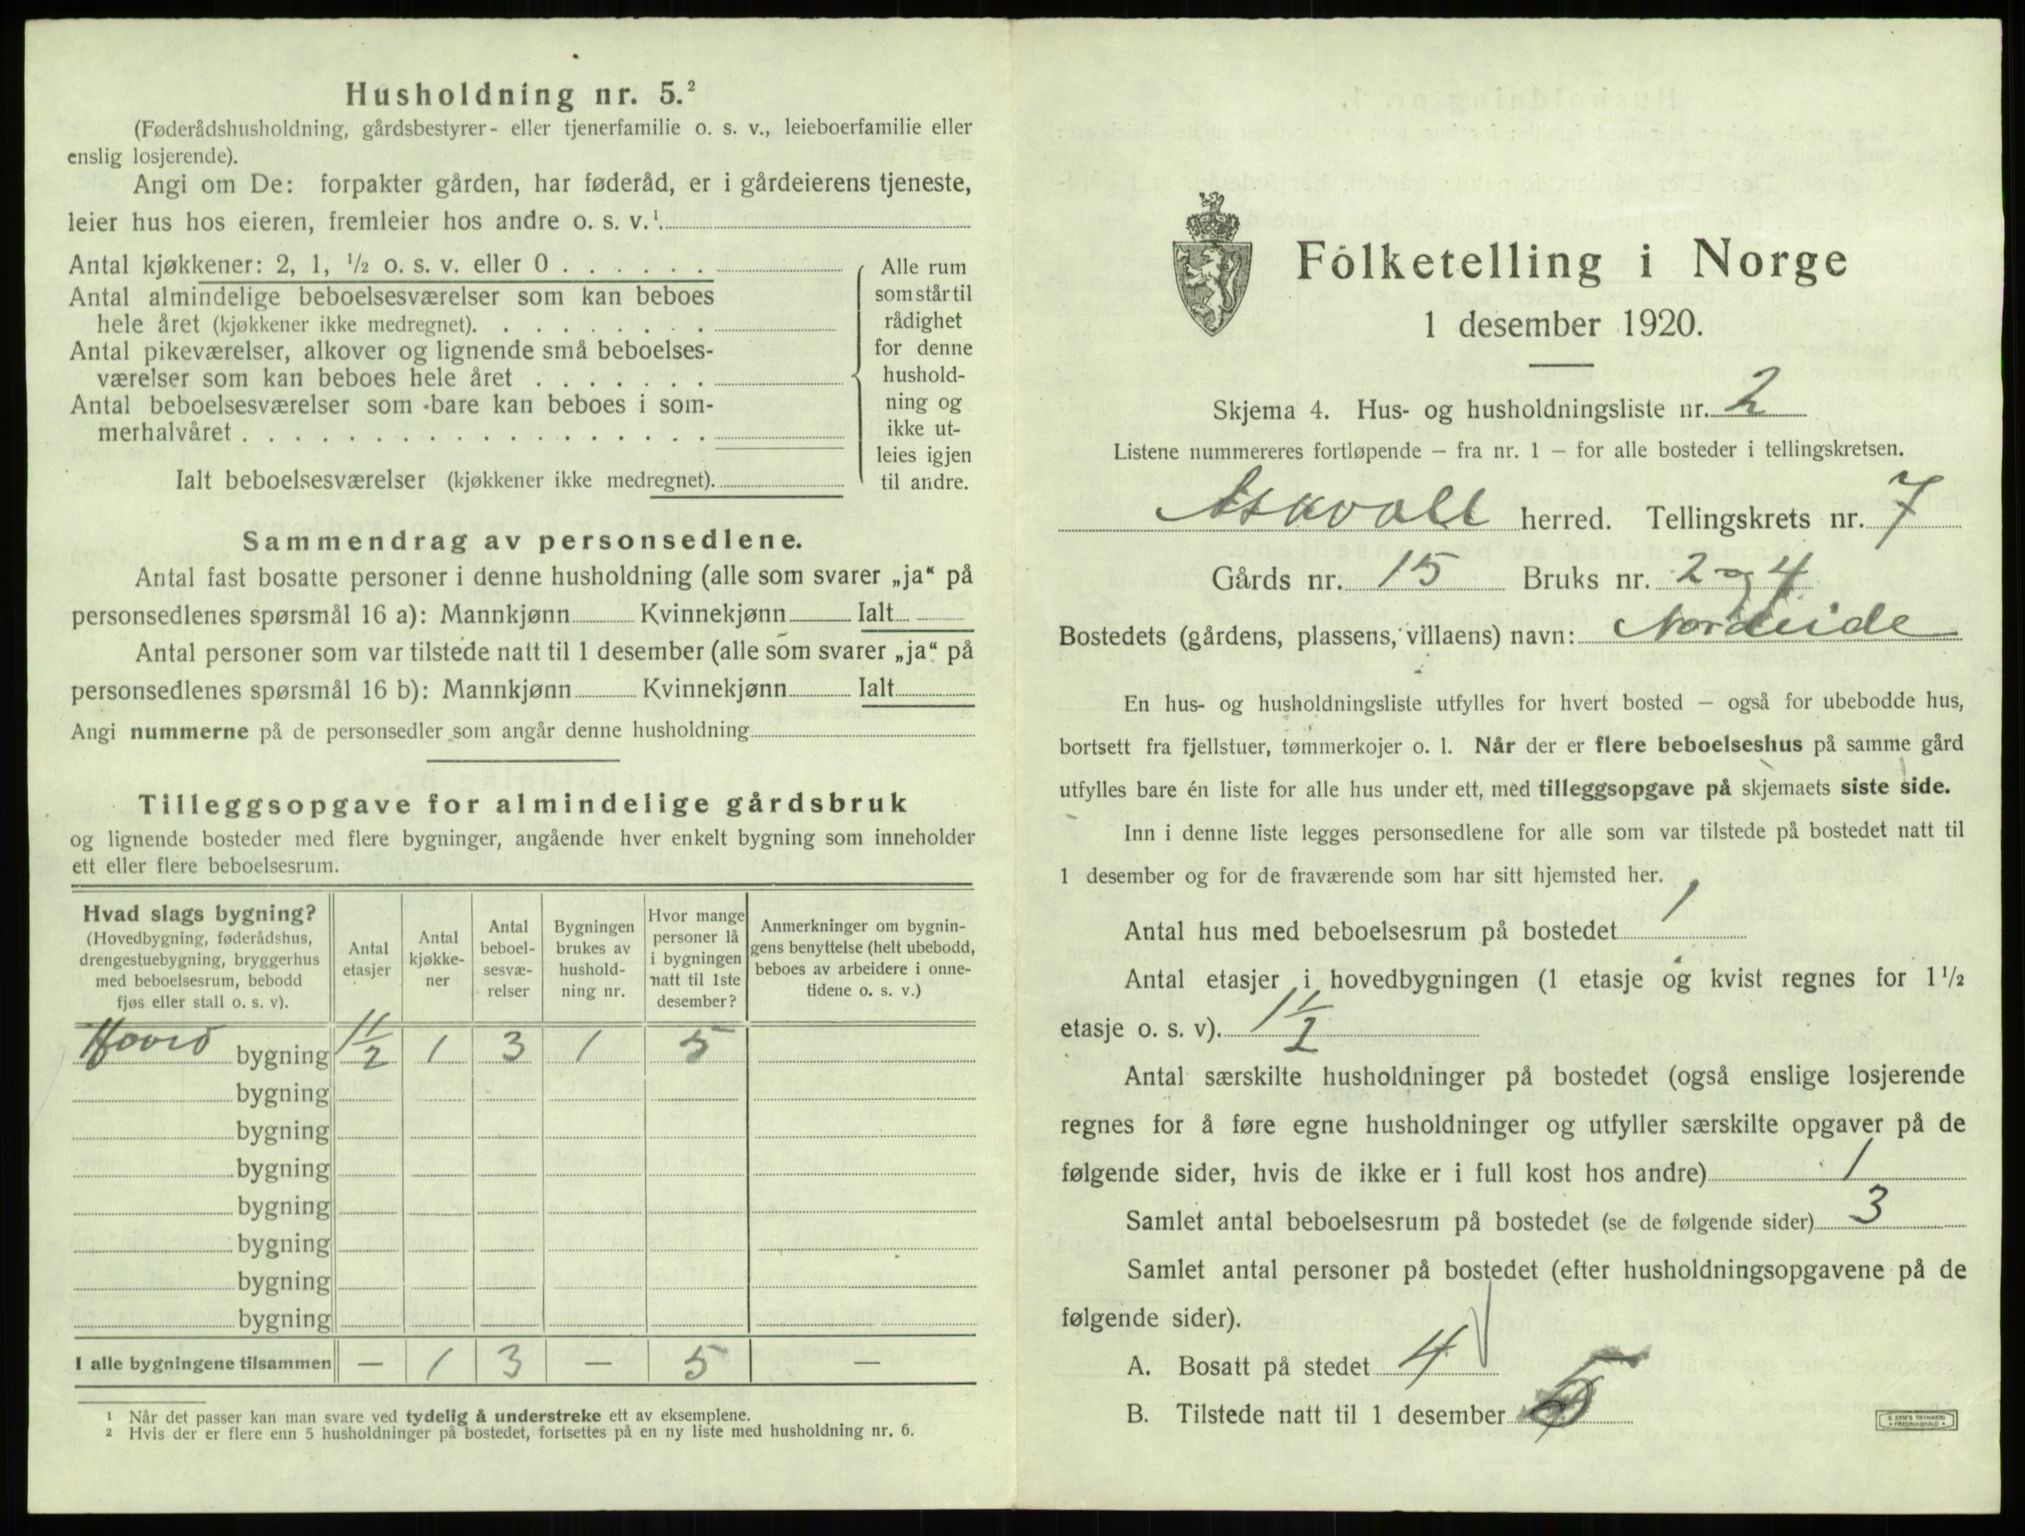 Husholdning nr. 5.²
(Føderådshusholdning, gårdsbestyrer- eller tjenerfamilie o. s. v., leieboerfamilie eller
enslig losjerende).
Angi om De: forpakter gården, har føderåd, er i gårdeierens tjeneste,
leier hus hos eieren, fremleier hos andre o. s. v.¹
Antal kjøkkener: 2, 1, ¹/₂ o. s. v. eller 0 . . . . . .
Antal almindelige beboelsesværelser som kan beboes
hele året (kjøkkener ikke medregnet). . . . . . . . .
Antal pikeværelser, alkover og lignende små beboelses-
værelser som kan beboes hele året . . . . . . .
Antal beboelsesværelser som bare kan beboes i som-
merhalvåret . . . . . . . . . . . . . . . . . .
Ialt beboelsesværelser (kjøkkener ikke medregnet).
Alle rum
som står til
rådighet
for denne
hushold-
ning og
ikke ut-
leies igjen
til andre.
Sammendrag av personsedlene.
Antal fast bosatte personer i denne husholdning (alle som svarer „ja“ på
personsedlenes spørsmål 16 a): Mannkjønn Kvinnekjønn Ialt
Antal personer som var tilstede natt til 1 desember (alle som svarer „ja“ på
personsedlenes spørsmål 16 b): Mannkjønn Kvinnekjønn Ialt
Angi nummerne på de personsedler som angår denne husholdning
Tilleggsopgave for almindelige gårdsbruk
og lignende bosteder med flere bygninger, angående hver enkelt bygning som inneholder
ett eller flere beboelsesrum.
Hvad slags bygning?
(Hovedbygning, føderådshus,
drengestuebygning, bryggerhus
med beboelsesrum, bebodd
fjøs eller stall o. s. v).
Antal
etasjer
Antal
kjøkke-
ner
Antal
beboel-
sesvæ-
relser
Bygningen
brukes av
hushold-
ning nr.
Hvor mange
personer lå
i bygningen
natt til 1ste
desember?
Anmerkninger om bygnin-
gens benyttelse (helt ubebodd,
beboes av arbeidere i onne-
tidene o. s. v.)
Hoved bygning 1 1/2 1 3 1 5
bygning
bygning
bygning
bygning
bygning
bygning
bygning
I alle bygningene tilsammen — 1 3 — 5 —
¹ Når det passer kan man svare ved tydelig å understreke ett av eksemplene.
² Hvis der er flere enn 5 husholdninger på bostedet, fortsettes på en ny liste med husholdning nr. 6.
Folketelling i Norge
1 desember 1920.
Skjema 4. Hus- og husholdningsliste nr. 2
Listene nummereres fortløpende — fra nr. 1 — for alle bosteder i tellingskretsen.
Askvoll herred. Tellingskrets nr. 7
Gårds nr. 15 Bruks nr. 2 og 4
Bostedets (gårdens, plassens, villaens) navn: Nordeide
En hus- og husholdningsliste utfylles for hvert bosted — også for ubebodde hus,
bortsett fra fjellstuer, tømmerkojer o. l. Når der er flere beboelseshus på samme gård
utfylles bare én liste for alle hus under ett, med tilleggsopgave på skjemaets siste side.
Inn i denne liste legges personsedlene for alle som var tilstede på bostedet natt til
1 desember og for de fraværende som har sitt hjemsted her.
Antal hus med beboelsesrum på bostedet 1
Antal etasjer i hovedbygningen (1 etasje og kvist regnes for 1 ¹/₂
etasje o. s. v). 1 1/2
Antal særskilte husholdninger på bostedet (også enslige losjerende
regnes for å føre egne husholdninger og utfyller særskilte opgaver på de
følgende sider, hvis de ikke er i full kost hos andre) 1
Samlet antal beboelsesrum på bostedet (se de følgende sider) 3
Samlet antal personer på bostedet (efter husholdningsopgavene på de
følgende sider).
A. Bosatt på stedet 4
B. Tilstede natt til 1 desember 5